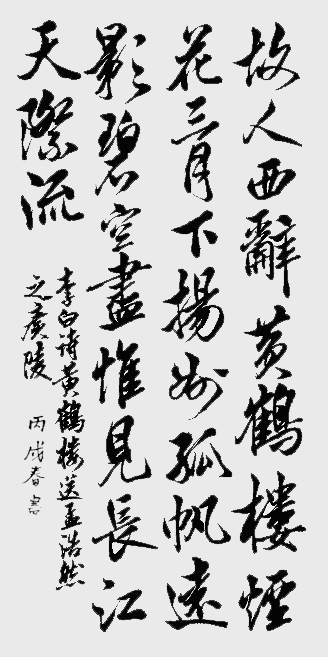 故人西辭黃鶴樓煙
花三月下揚州孤帆遠
影碧空盡惟見長江
天際流
李白诗黄鶴楼送孟浩然
之廣陵
丙戌春書